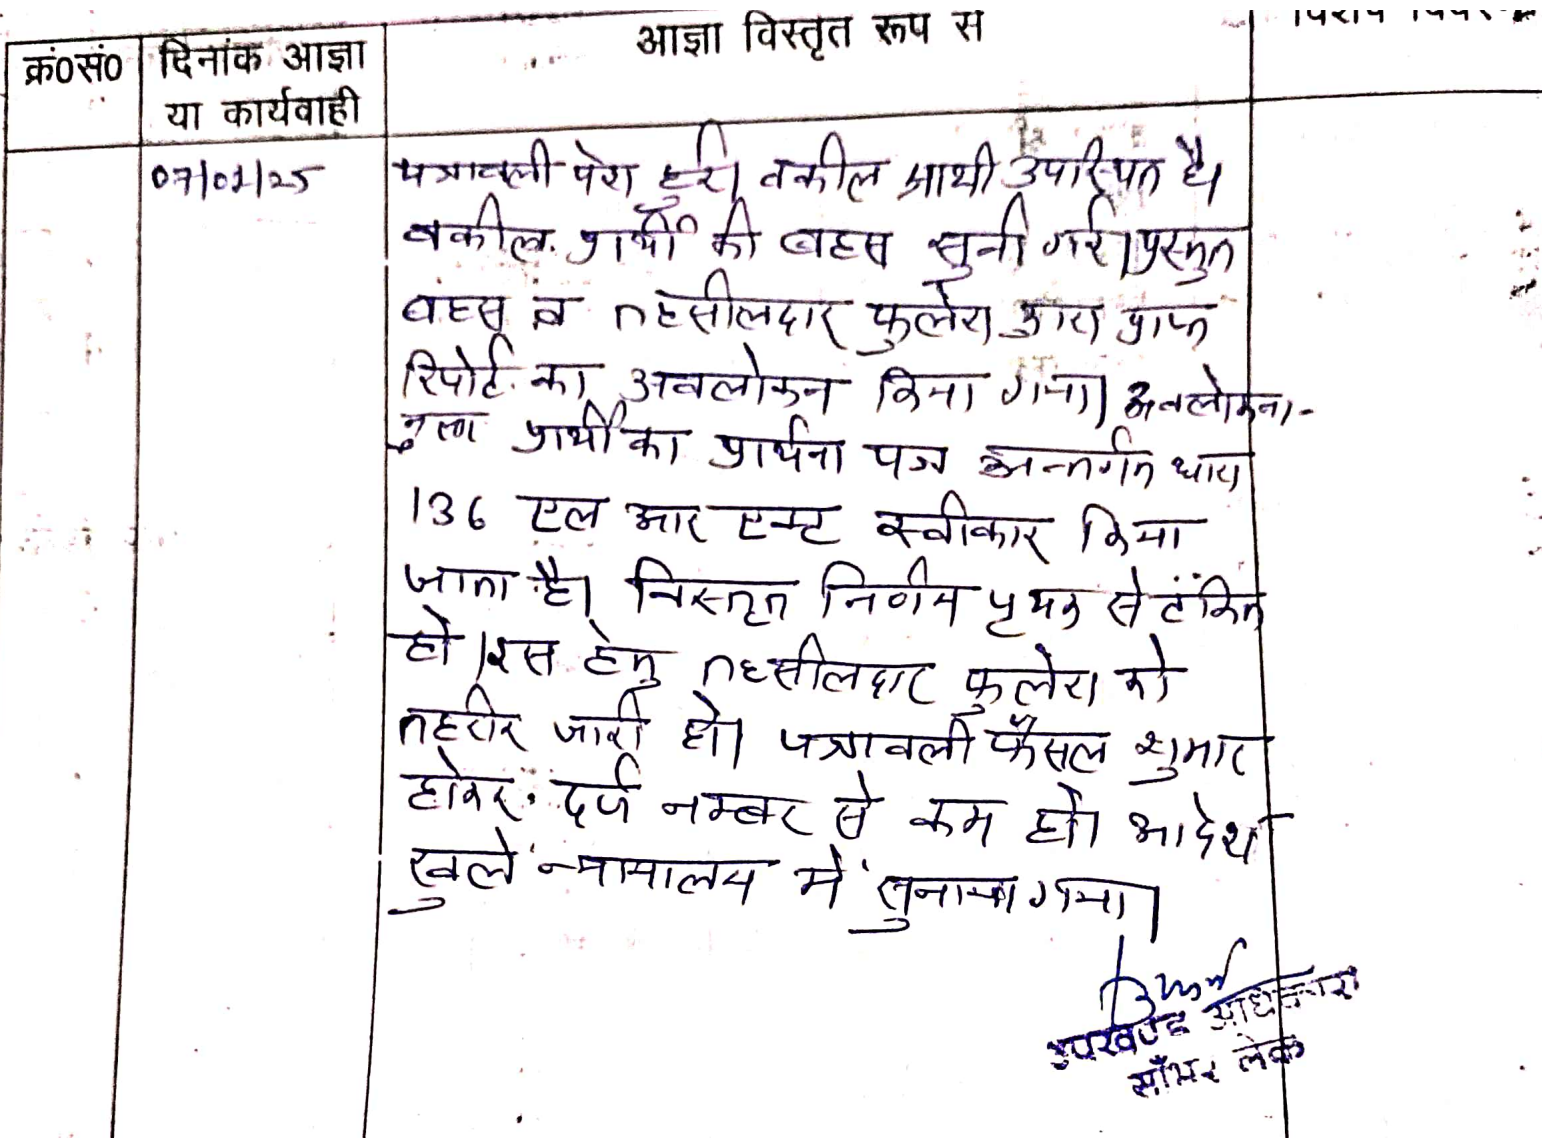 आज्ञा विस्तृत रूप से
क्रं०सं०
दिनांक आज्ञा
या कार्यवाही
07/01/25
पत्रावली पेश हुई। वकील प्रार्थी उपस्थित है।
वकील प्रार्थी की बहस सुनी गई। प्रस्तुत
बहस व तहसीलदार फुलेरा द्वारा प्राप्त
रिपोर्ट का अवलोकन किया गया। अवलोकना-
नुसार प्रार्थी का प्रार्थना पत्र अन्तर्गत धारा
136 एल आर एक्ट स्वीकार किया
जाता है। विस्तृत निर्णय पृथक से टंकित
हो। इस हेतु तहसीलदार फुलेरा को
तहरीर जारी हो। पत्रावली फैसल शुमार
होकर दर्ज नम्बर से कम हो। आदेश
खुले न्यायालय में सुनाया गया।
उपखण्ड अधिकारी
साँभर लेक